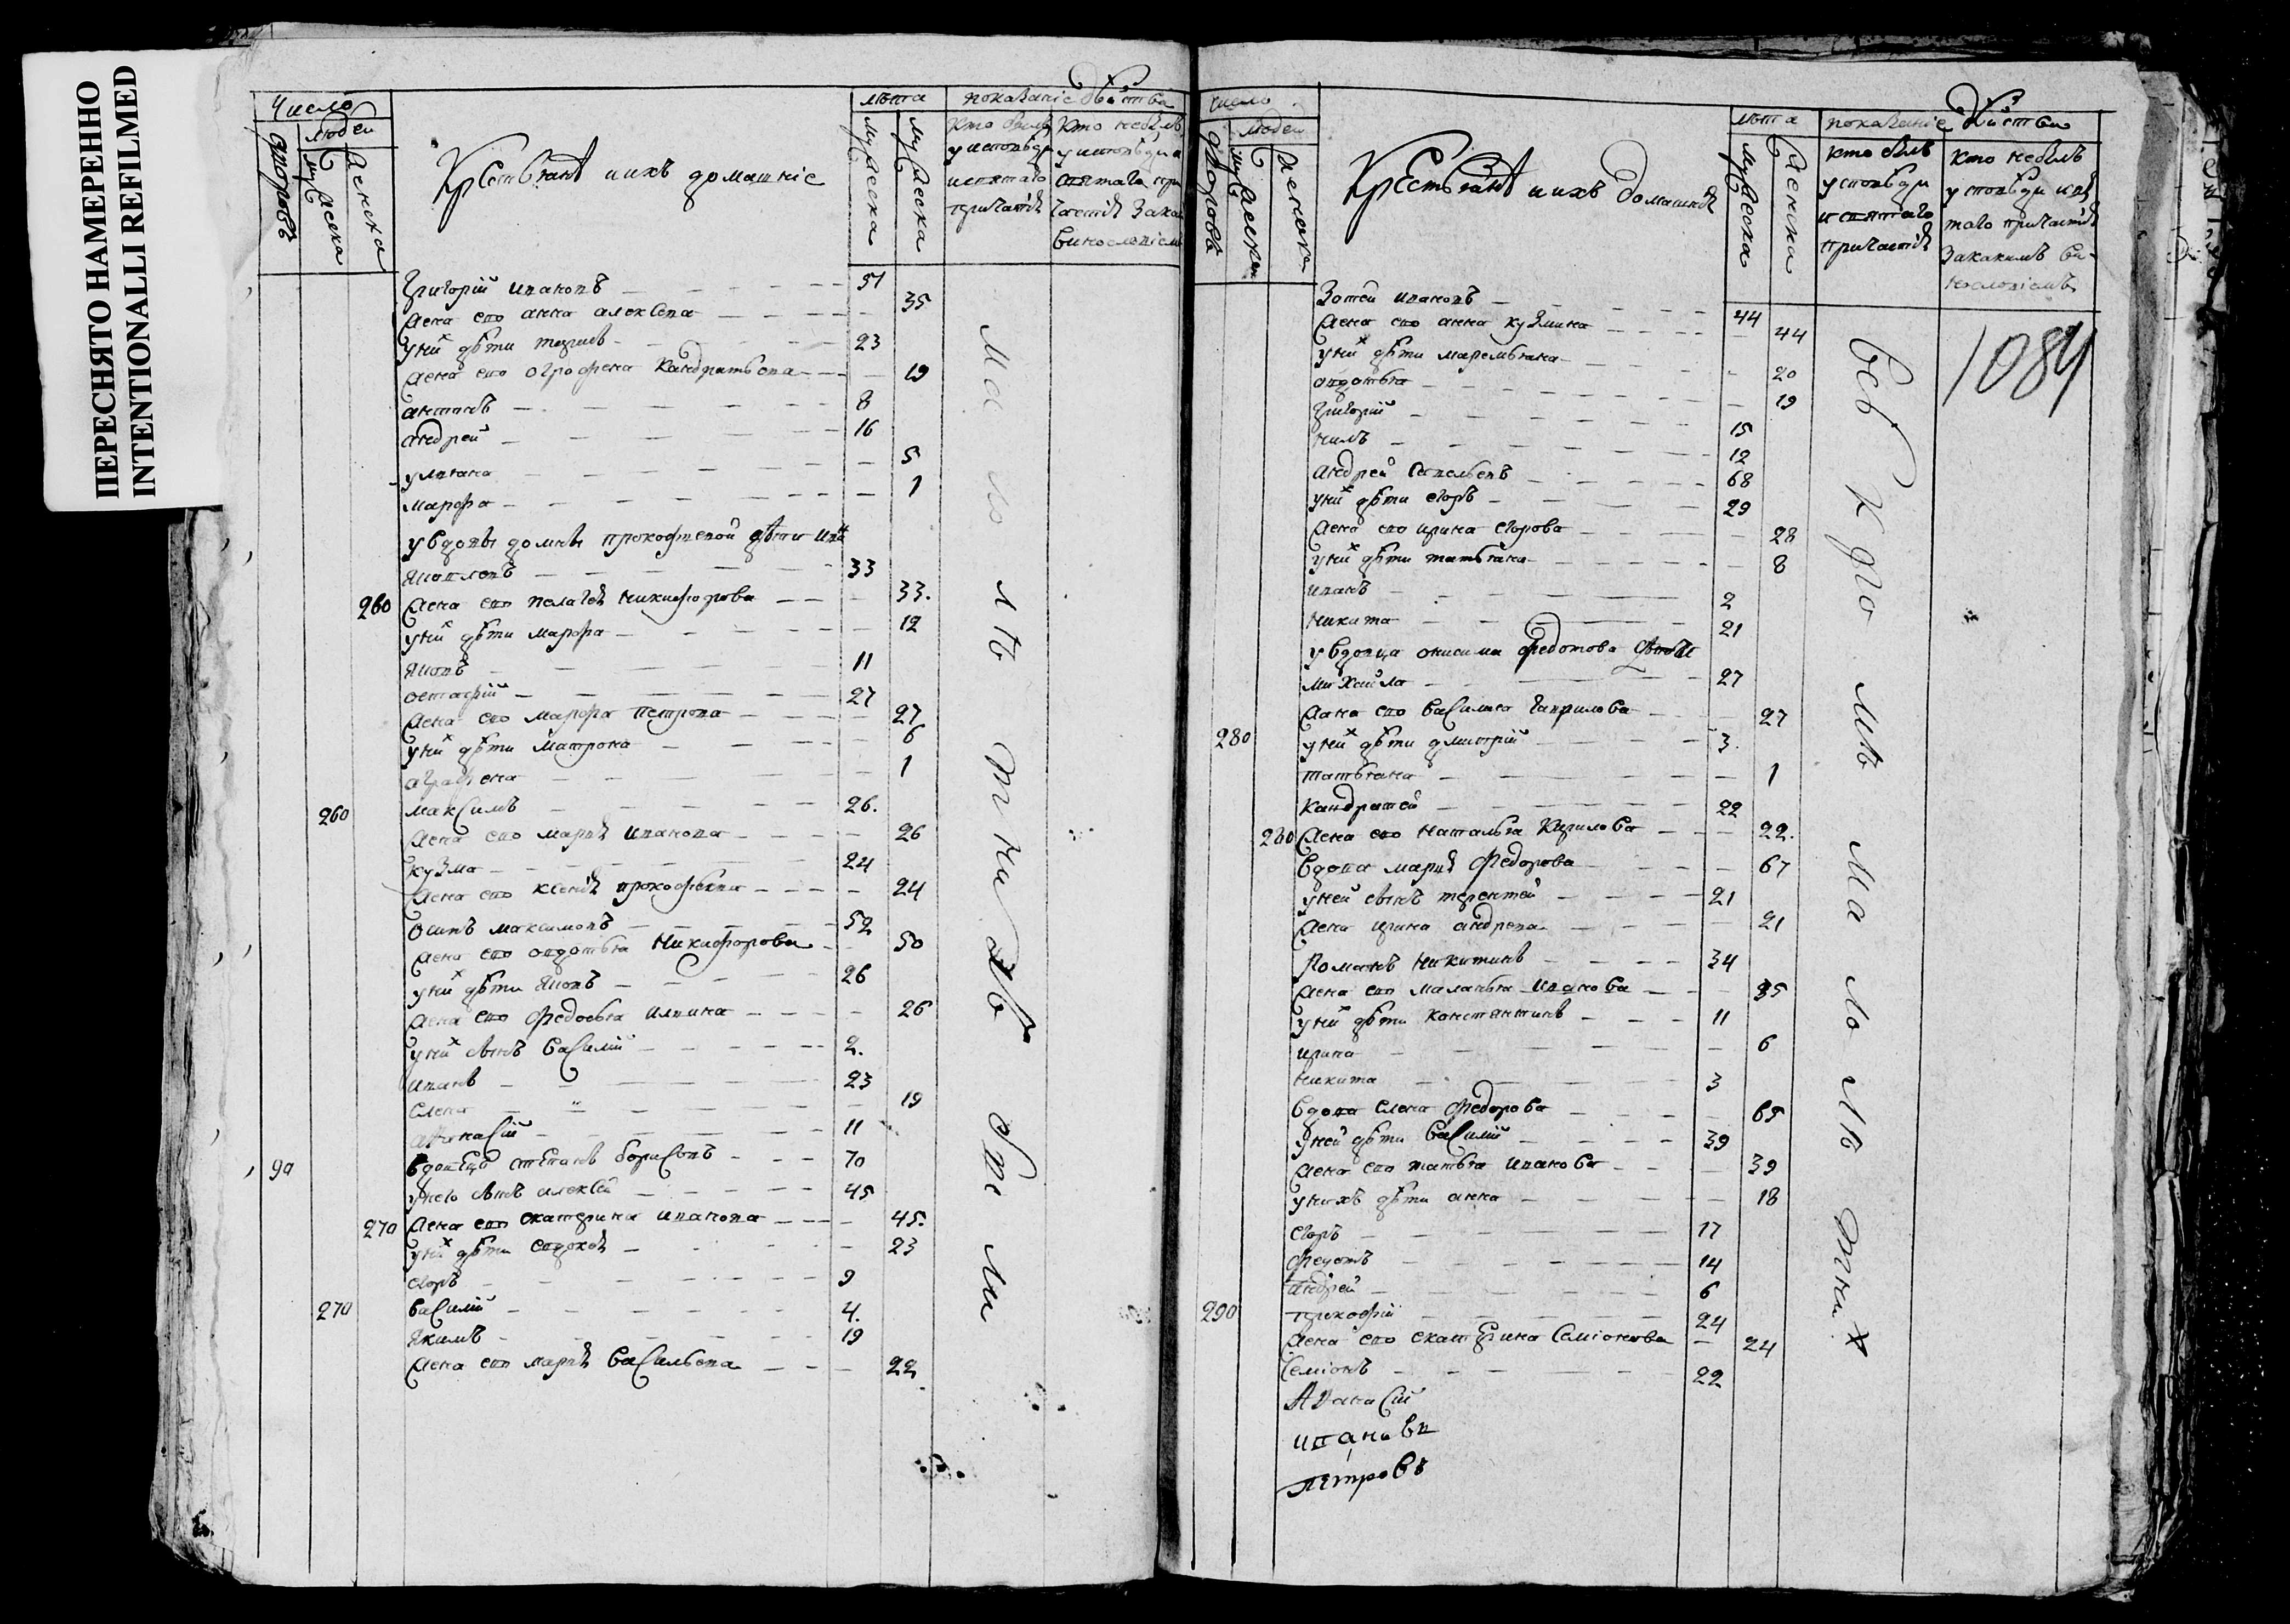 ПЕРЕСНЯТО НАМЕРЕННО
INTENTIONALLI REFILMED
Число
дворовъ
людеи
мужеска
женска
Крестьянѣ ихъ домашніе
лѣта
мужеска
женска
показаніе дѣйства
Кто былъ у исповѣди и святаго причастія
Кто небылъ у исповѣди и святаго при частія Зака Винословіемъ
Григорій ивановъ 51
Жена его анна алексѣева 35
у них дѣти 23
Жена его огрофена Кондратьева 19
антонъ 8
андрей 16
улияна 5
марфа 1
у вдовы домны прокофьевой дѣти
яковлевъ 33
260 Жена его пелагея Никифорова 33.
у них дѣти марфа 12
яковъ 11
остафій 27
Жена его марфа Петрова 27
у них дѣти матрона 6
аграфена 1
260 максимъ 26.
Жена его марья иванова 26
кузма 24
Жена его ксенія прокофьева 24
осипъ максимовъ 52
Жена его овдотья Никифорова 50
у них дѣти яковъ 26
Жена его федосья илина 26
у них сынъ василій 2.
иванъ 23
елена 19
афонасій 11
90 вдовецъ степанъ борисовъ 70
у него сынъ алексѣй 45
270 Жена его екатерина иванова 45.
у них дѣти евдокея 23
егоръ 9
270 василій 4.
якимъ 19
Жена его марья васильева 22
ма ло лѣ тна дѣ ти
число
дворовъ
людеи
мужеска
женска
Крестьянѣ ихъ домашнія
лѣта
мужеска
женска
показаніе дѣйства
кто былъ у споведи и святаго причастія
кто небылъ у споведи и святаго причастія Закакимъ винословіемъ
1084
Зотей ивановъ 44
Жена его анна кузмина 44
у них дѣти маремьяна 20
овдотья 19
григорій 15
нилъ 12
андрей савельевъ 68
у них дѣти егоръ 29
Жена его ирина егорова 28
у них дѣти татьяна 8
иванъ 2
никита 21
у вдовца онисима федотова
михайла 27
Жена его василиса гаврилова 27
280 у них дѣти дмитрій 3.
татьяна 1
кандратей 22
280 Жена его наталья Кирилова 22.
вдова марья федорова 67
у ней сынъ терентей 21
Жена ирина андрева 21
романъ никитинъ 34
Жена его маланья иванова 35
у них дѣти константинъ 11
ирина 6
никита 3
вдова елена федорова 65
у ней дѣти василій 39
Жена его татьяна иванова 39
у нихъ дѣти анна 18
егоръ 17
федотъ 14
андрей 6
290 прокофій 24
Жена его екатерина семіонова 24
семіонъ 22
Аѳанасій
ивановъ
петровъ
ма ло лѣ тних